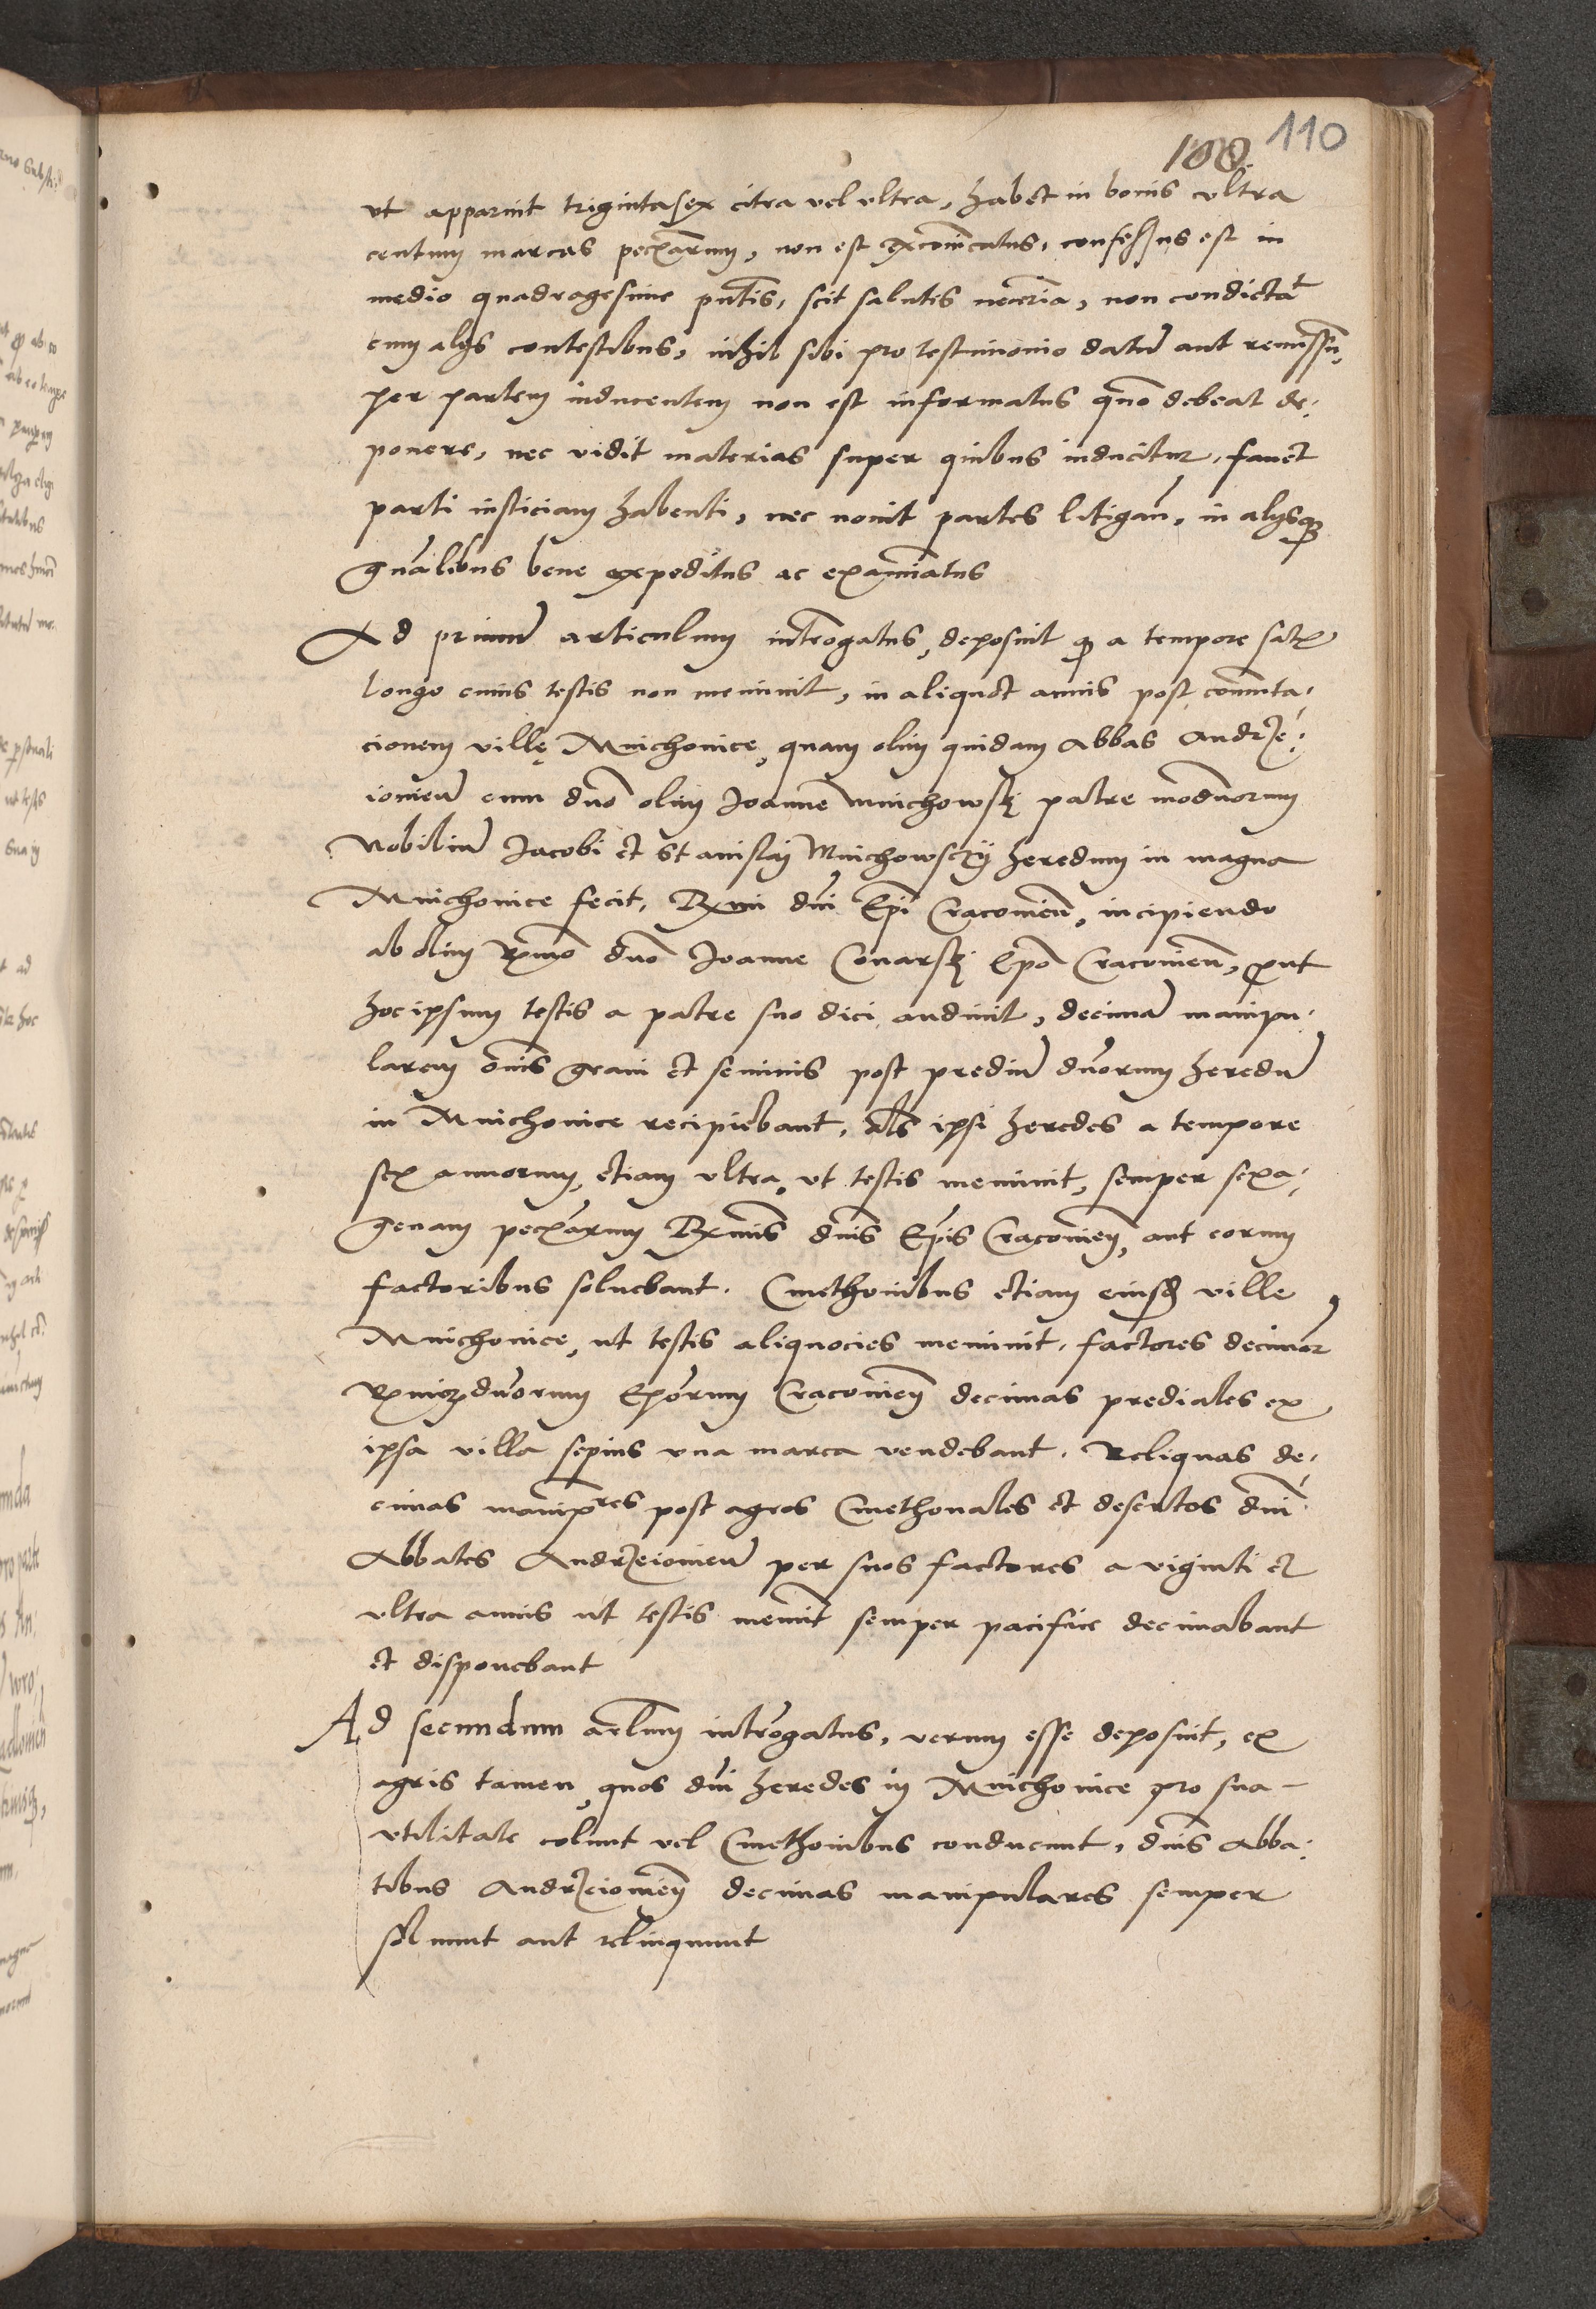 100 110
vt apparuit trigintasex citra vel vltra, habet in bonis vltra
centum marcas pecūarum, non est excōīcatus, confessus est in
medio quadragesime pn̄tis, scit salutis necc̄ria, non condictat̄
cum alys contestibus, nihil sibi pro testimonio datū aut remissū,
per partem inducentem non est informatus quō debeat de-
ponere, nec vidit materias super quibus inducitur, fauet
parti iusticiam habenti, nec nouit partes litigan̄, in alysq;
gn̄alibus bene expeditus ac examinatus
Ad primū articulum intrōgatus, deposuit q a tempore satis
longo cuius testis non meminit, in aliquot annis post cōmuta-
cionem villę Mnichouice, quam olim quidam Abbas Andrze-
iouien̄ cum dn̄o olim Joanne Mnichowskj patre modn̄orum
Nobiliū Jacobi et Stanislaj Mnichowsczÿ heredum in magna
Mnichouice fecit, Rxmi dn̄i Ep̄i Cracouien̄, incipiendo
ab olim Rxm̄o dn̄o Joanne Conarskj Ep̄o Cracouien̄, put
hoc ipsum testis a patre suo dici audiuit, decimā manipu-
larem ōnis grani et seminis post prediū dn̄orum heredū
in Mnichouice recipiebant, Als ipsi heredes a tempore
sex annorum, etiam vltra, vt testis meminit, semper sexa-
genam pecūarum Rxmis dn̄is Ep̄is Cracouien̄, aut eorum
factoribus soluebant. Cmethonibus etiam eiusd ville
Mnichouice, ut testis aliquocies meminit, factores decimar
Rxmor dn̄orum Ep̄orum Cracouien̄ decimas prediales ex
ipsa villa sepius vna marca vendebant. Reliquas de-
cimas manip̄res post agros Cmethonales et desertos dn̄i
Abbates Andrzeiouien̄ per suos factores a viginti et
vltra annis ut testis memīt semper pacifice decimabant
et disponebant
Ad secundum artlum intrōgatus, verum esse deposuit, ex
agris tamen, quos dn̄i heredes in Mnichouice pro sua
vtilitate colunt vel Cmethonibus conducunt, dn̄is Abba-
tibus Andrzeiouien̄ decimas manipulares semper
soluunt aut relinquunt